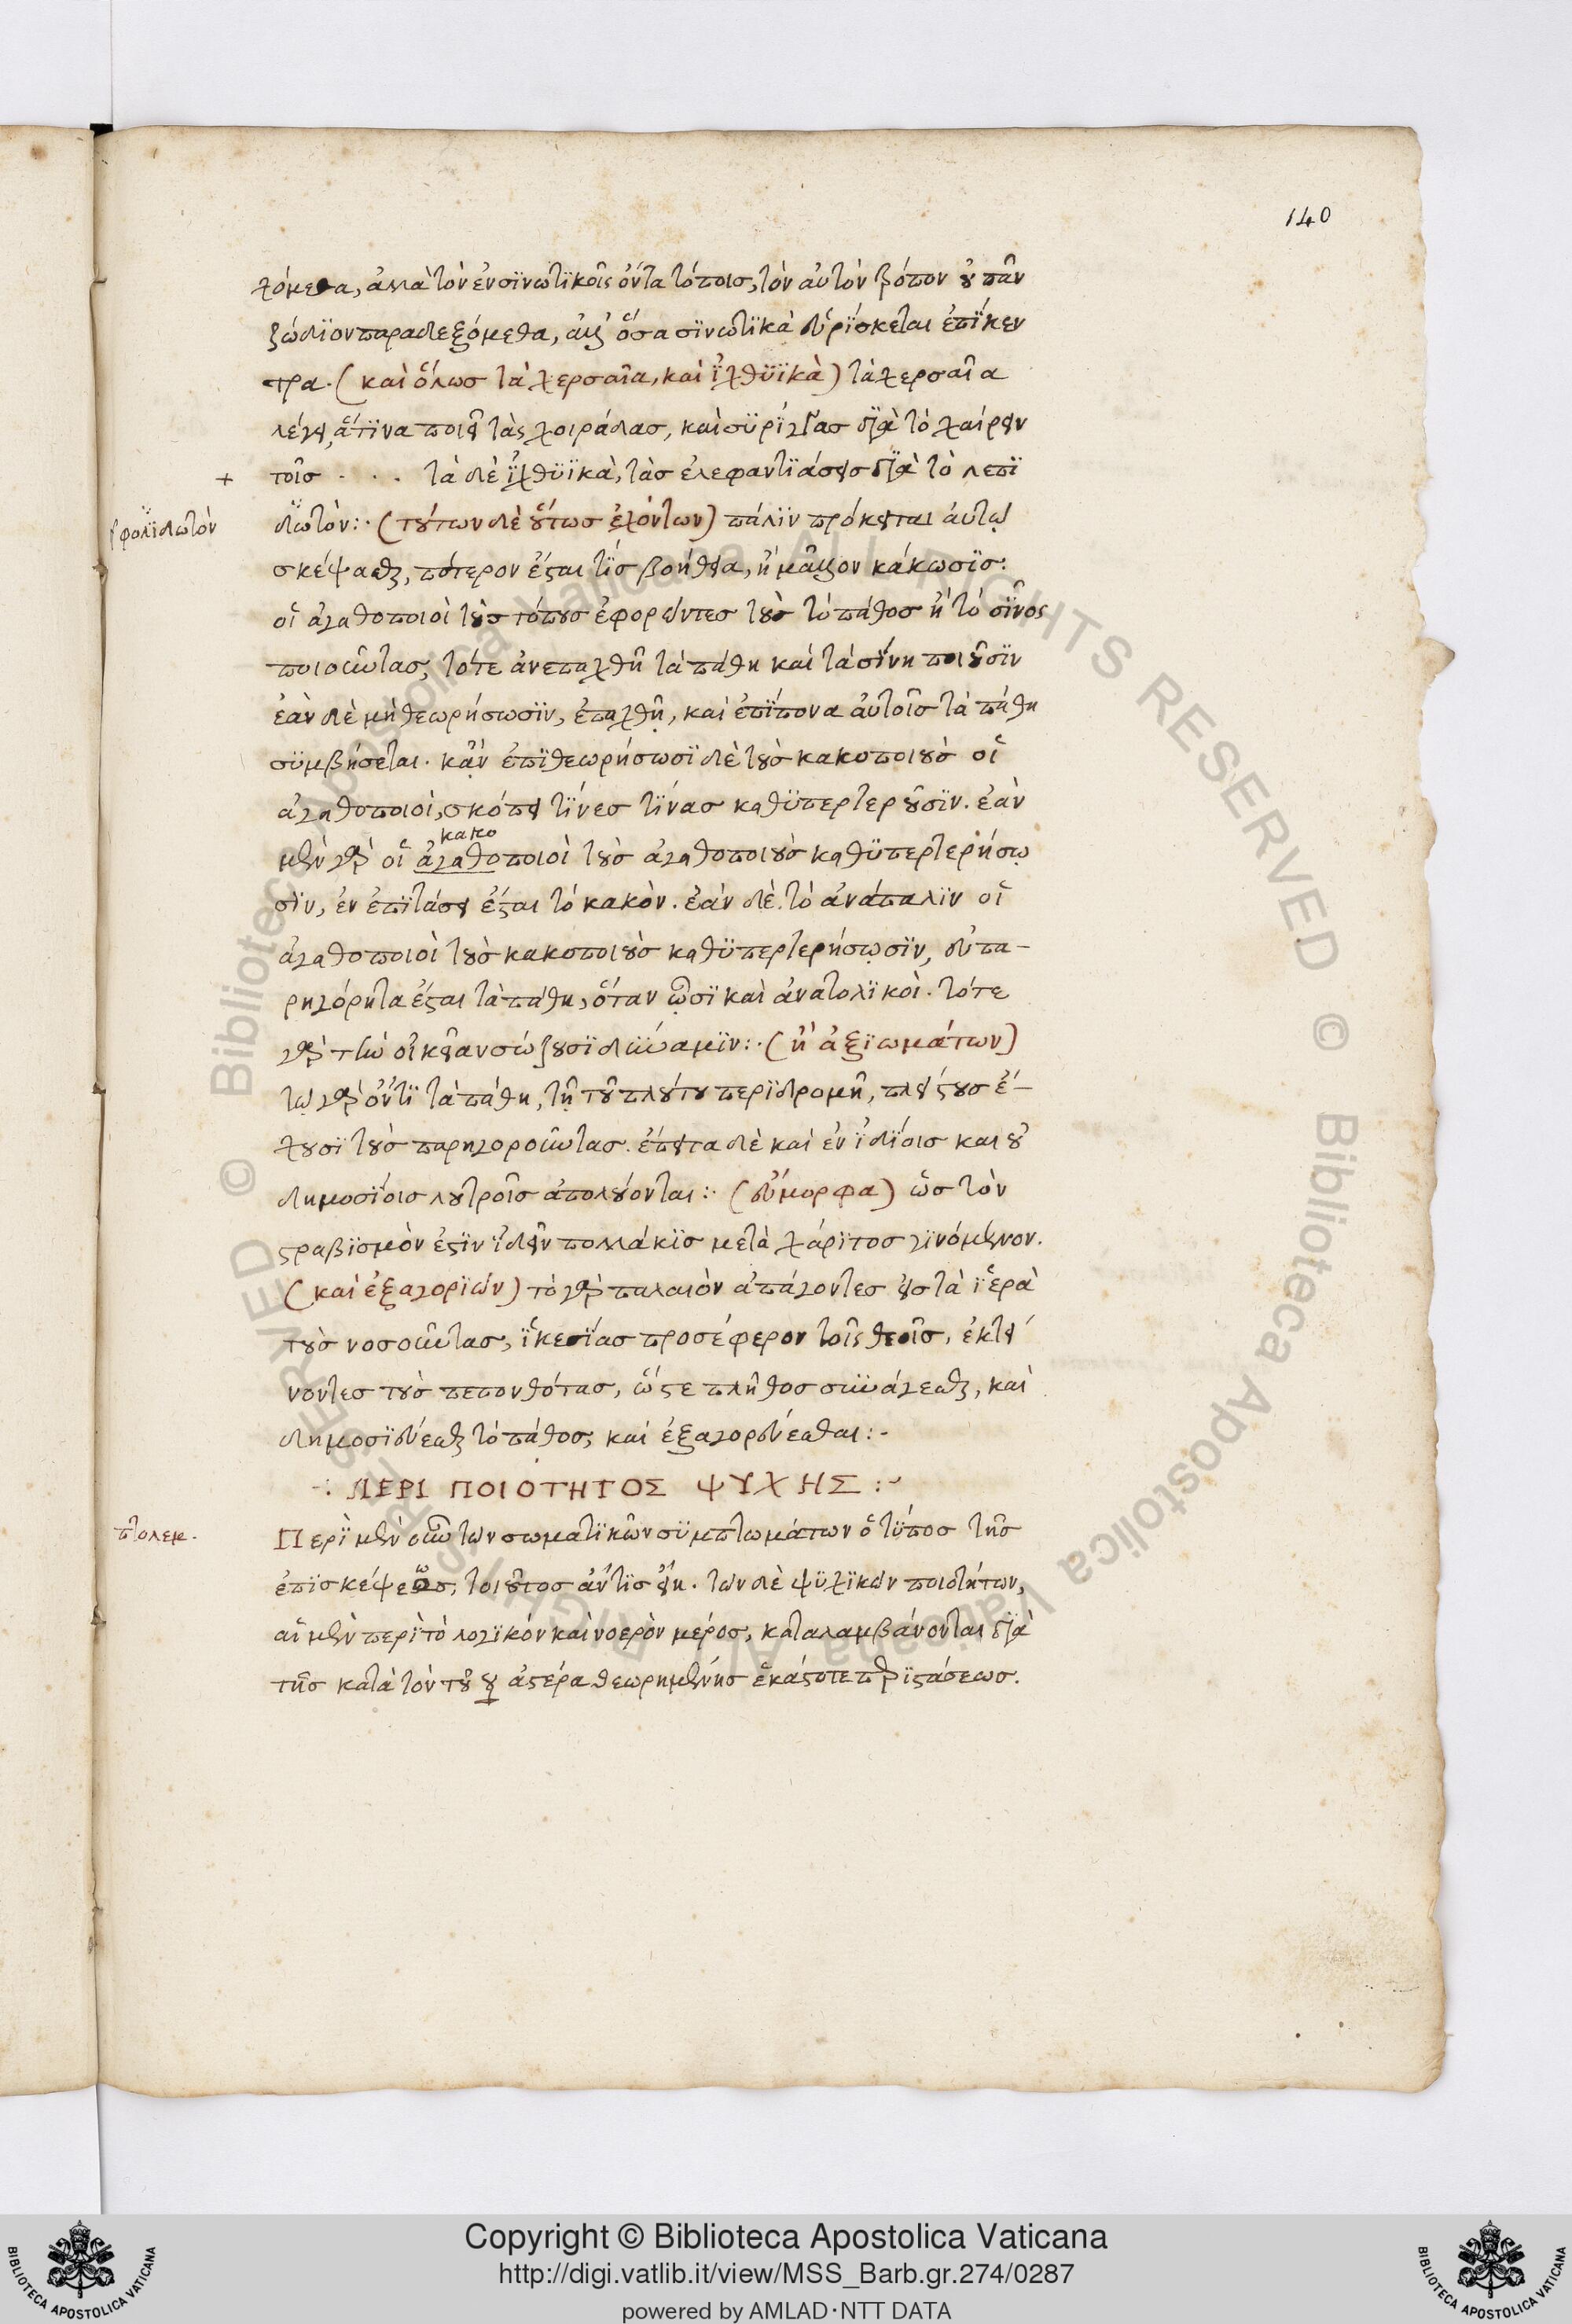 140
χόμεθα, ἀλλὰ τὸν ἐν σϊνωτϊκοῖς ὄντα τόποις, τὸν αὐτὸν τρόπον οὐ πᾶν
ζώδϊον παραδεξόμεθα, ἀλλ' ὅσα σϊνωτϊκὰ εὑρΐσκεται ἐπΐκεν
τρα. (καὶ ὅλως τὰ χερσαῖα, καὶ ἰχθϋϊκὰ) τὰ χερσαῖα
λέγει, ἅτϊνα ποιεῖ τὰς χοιράδας, καὶ σϋρϊγγας δϊὰ τὸ χαίρειν
+ τοῖς . . . τὰ δὲ ἰχθϋϊκὰ, τὰς ἐλεφαντϊάσεις δϊὰ τὸ λεπϊ
φολϊδωτὸν
δωτὸν:· (τούτων δὲ οὕτως ἐχόντων) πάλϊν πρόκειται αὐτῷ
σκέψασθαι, πότερον ἔσται τϊς βοήθεια, ἢ μᾶλλον κάκωσϊς:
οἱ ἀγαθοποιοὶ τοὺς τόπους ἐφορῶντες τοὺς τὸ πάθος ἢ τὸ σῖνος
ποιοῦντας, τότε ἀνεπαχθῆ τὰ πάθη καὶ τὰ σΐνη ποιοῦσϊν
ἐὰν δὲ μὴ θεωρήσωσϊν, ἐπαχθῆ, καὶ ἐπΐπονα αὐτοῖς τὰ πάθη
σϋμβήσεται. κἂν ἐπϊθεωρήσωσϊ δὲ τοὺς κακοποιοὺς οἱ
ἀγαθοποιοὶ, σκόπει τΐνες τΐνας καθϋπερτεροῦσϊν. ἐὰν
κακο
μὲν γὰρ οἱ ἀγαθοποιοὶ τοὺς ἀγαθοποιοὺς καθϋπερτερήσω
σϊν, ἐν ἐπϊτάσει ἔσται τὸ κακὸν. ἐὰν δὲ τὸ ἀνάπαλϊν οἱ
ἀγαθοποιοὶ τοὺς κακοποιοὺς καθϋπερτερήσωσϊν, εὐπα-
ρηγόρητα ἔσται τὰ πάθη, ὅταν ὦσϊ καὶ ἀνατολϊκοὶ. τότε
γὰρ τὴν οἰκείαν σώζουσϊ δύναμϊν:· (ἢ ἀξϊωμάτων)
τῷ γὰρ ὄντϊ τὰ πάθη, τῇ τοῦ πλούτου περϊδρομῇ, πλείστους ἔ-
χουσϊ τοὺς παρηγοροῦντας. ἔπειτα δὲ καὶ ἐν ἰδΐοις και οὐ
δημοσΐοις λουτροῖς ἀπολούονται:· (εὔμορφα) ὡς τὸν
στραβϊσμὸν ἔστϊν ἰδεῖν πολλάκϊς μετὰ χάρϊτος γϊνόμενον.
(καὶ ἐξαγορϊών) τὸ γὰρ παλαιὸν ἀπάγοντες εἰς τὰ ἱερὰ
τοὺς νοσοῦντας, ἱκεσΐας προσέφερον τοῖς θεοῖς, ἐκτεί
νοντες τοὺς πεπονθότας, ὥστε πλῆθος συνάγεσθαι, καὶ
δημοσϊεύεσθαι τὸ πάθος, καὶ ἐξαγορεύεσθαι:-
·: ΠΕΡΙ ΠΟΙΟΤΗΤΟΣ ΨΥΧΗΣ :~
πτολεμ.
Περὶ μὲν οὖν τῶν σωματϊκῶν σϋμπτωμάτων ὁ τϋπος τῆς
ἐπϊσκέψεως, τοιοῦτος ἄν τϊς εἴη. τῶν δὲ ψϋχϊκῶν ποιοτήτων,
αἱ μὲν περὶ τὸ λογϊκὸν καὶ νοερὸν μέρος, καταλαμβάνονται δϊὰ
τῆς κατὰ τὸν τοῦ ☿ ἀστέρα θεωρημένης ἑκάστοτε περϊστάσεως.
Copyright © Biblioteca Apostolica Vaticana
http://digi.vatlib.it/view/MSS_Barb.gr.274/0287
powered by AMLAD·NTT DATA